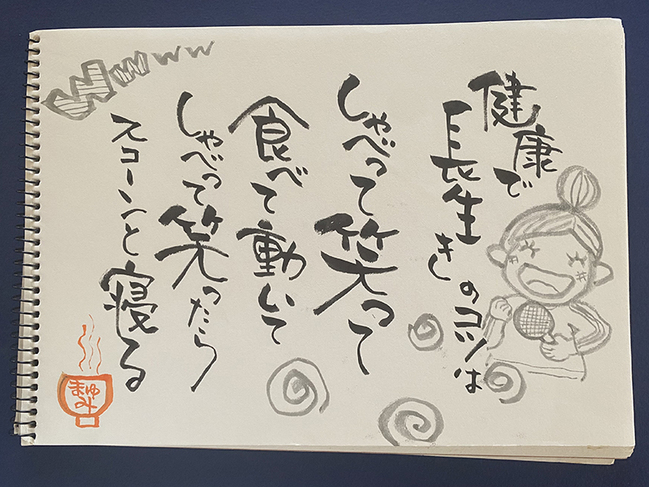 健康で
長生きのコツは
しゃべって笑って
食べて動いて
しゃべって笑ったら
スコーンと寝る
wwwww
まゆみ